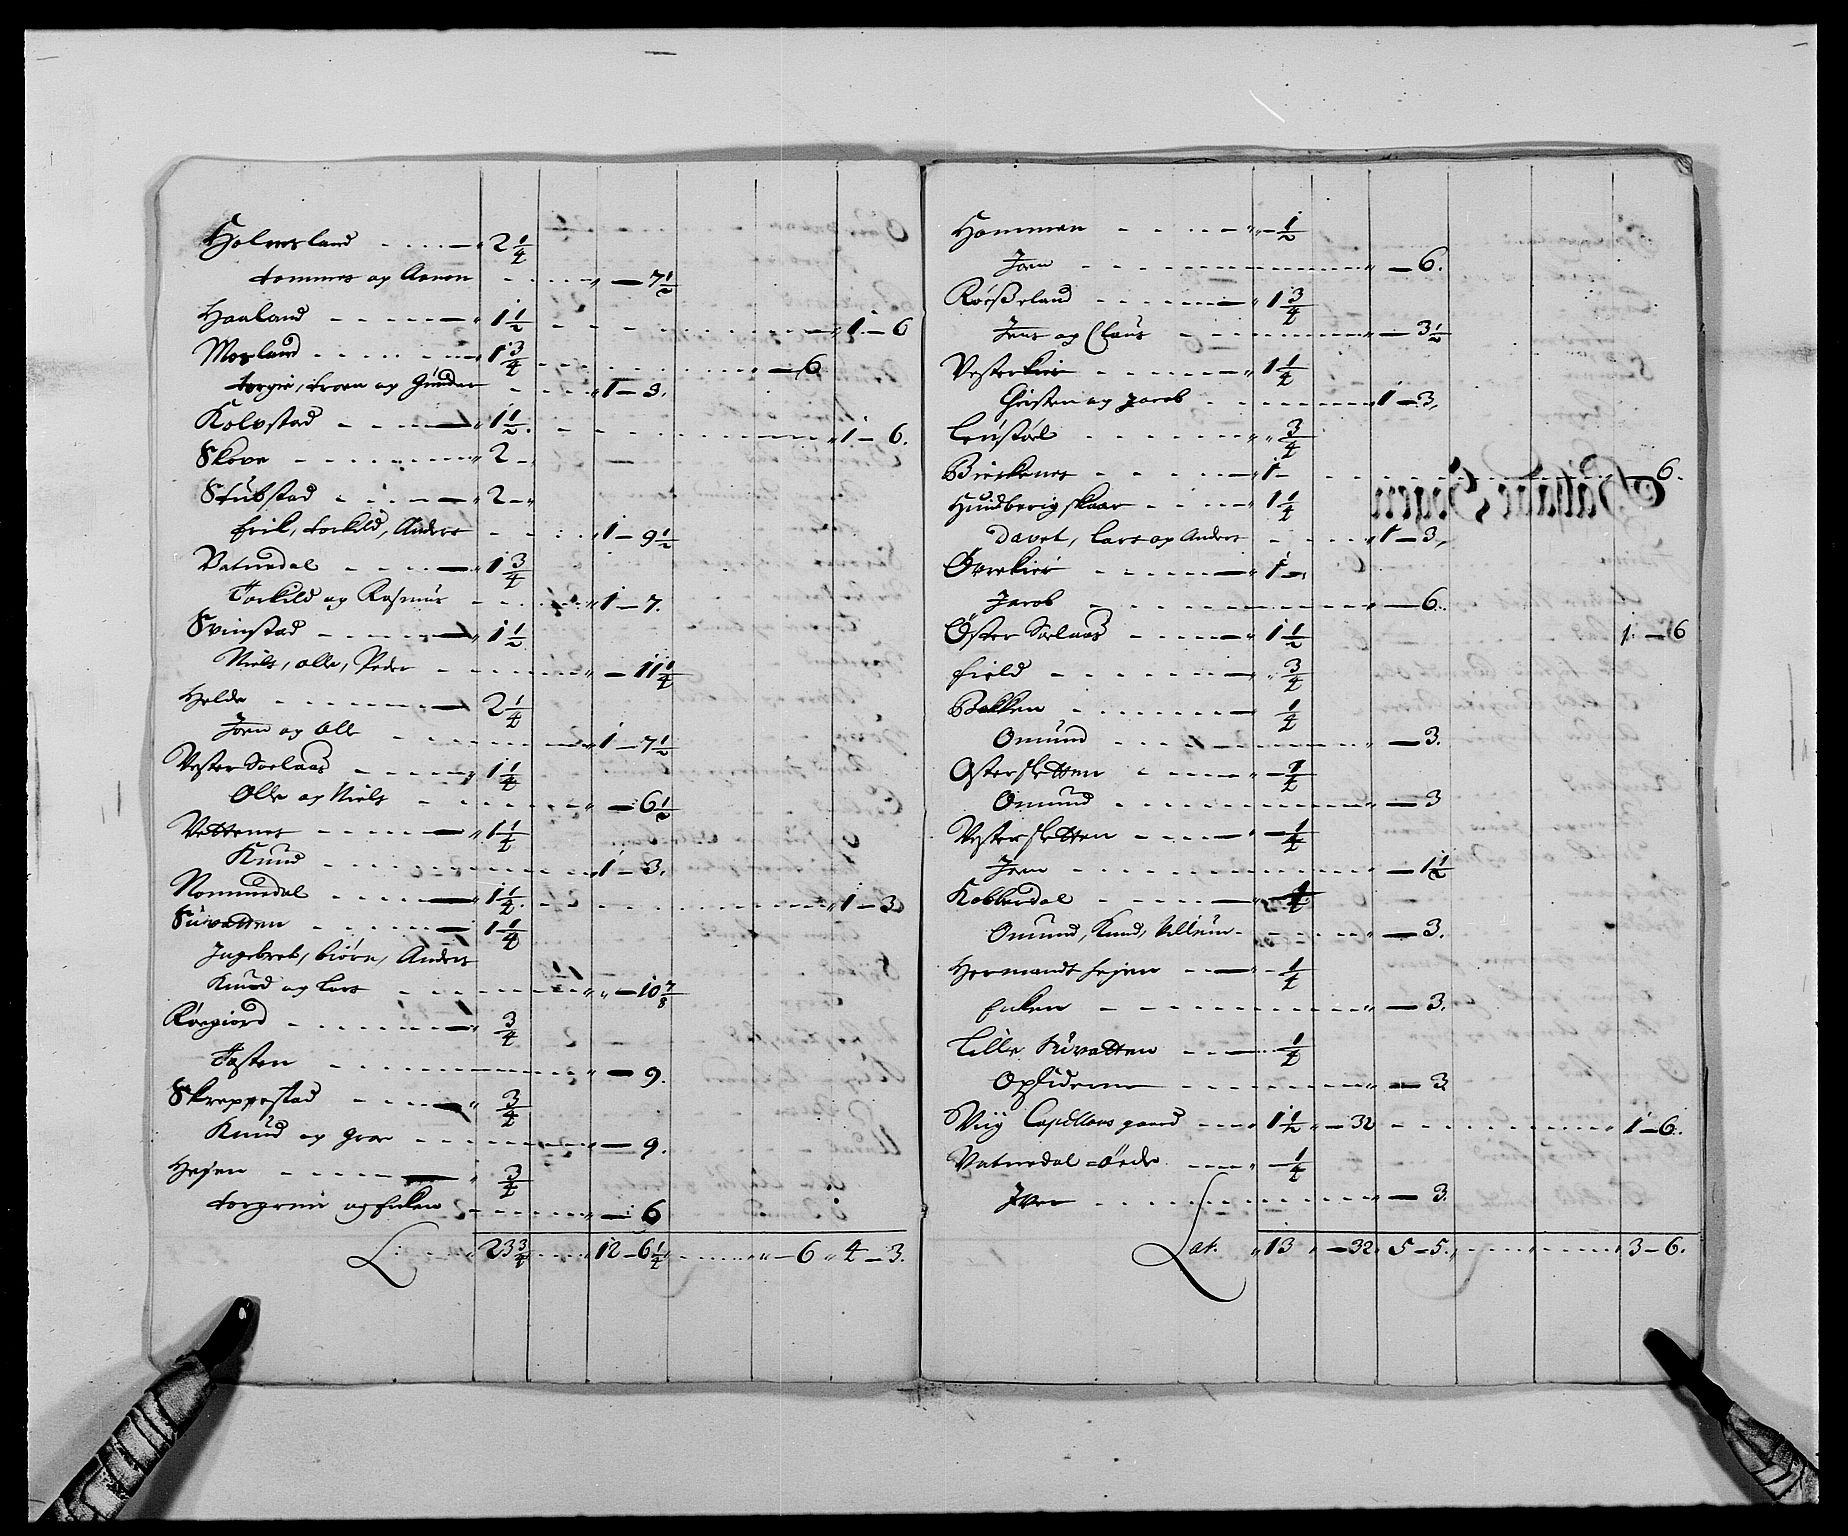 Holmesland - - - - 2 1/4
tommes og Aanon - - - - " — 7 1/2
Haaland - - - - 1 1/2 - - - - 1 - 6
Mosland - - - - 1 3/4 - - - - — 6
torgie, troen og Gunder - - - 1 - 3.
Kolvstad - - - - 1 1/2. - - - - 1 - 6.
Skove - - - - 2 -
Stubstad - - - - 2 - "
Erik, torkild, Anders - - - - 1 - 9 1/2
Vatnedal - - - - 1 3/4
Torkild og Rasmus - - - - 1 - 7.
Svinstad - - - - 1 1/2
Niels, olle, Peder - - - - — 11 1/4
Helde - - - - 2 1/4
Joen og Olle - - - - 1 - 7 1/2
Vester Sælaas - - - - 1 1/4
Olle og Niels - - - - — 6 1/2
Vettenes - - - - 1 1/4
Knud - - - - 1 - 3.
Nommedal - - - - 1 1/2. - - - - 1 - 3
Suvatten - - - - 1 1/4
Ingebret, biørn, Anders
Knud og Lars - - - - " — 10 7/8
Røegiord - - - - 3/4
Tosten - - - - " — 9.
Skreppestad - - - - 3/4
Knud og Groe - - - - — 9.
Heyen - - - - 3/4
torgrim og Enken - - - - — 6
L: - - - 23 3/4 - - - 12 - 6 1/4 - - - - " — 6 " 4 - 3.
Hommen - - - - 1/2
Joen - - - - — 6.
Røisseland - - - - 1 3/4
Jens og Claus - - - - — 3 1/2
Vesterkier - - - - 1 1/4
Christen og Jacob - - - - 1 - 3,
Lenstøel - - - - 3/4
Birkenes - - - - 1 - - - - - 6.
Hundberigskaar - - - - 1 1/4
Davet, Lars og Anders - - - - 1 - 3,
Øvrekier - - - - 1 -
Jacob - - - - — 6.
Øster Sælaas - - - - 1 1/2 1. - 6
Field - - - - 3/4
Bakken - - - - 1/4
Omund - - - - — 3.
Østersletten - - - - 1/4
Omund - - - - — 3
Vestersletten - - - - 1/4
Joen - - - - — 1 1/2
Kobberdal - - - - 1/4
Omund, Knud, Villum - - - - — 3.
Hermandsheyen - - - 1/4
Enken - - - - — 3.
Lille Suvatten - - - 1/4
Opsiderne - - - - — 3
Viig Capellans gaard - - - 1 1/2 - 32 - - - - 1 - 6.
Vatnedal = øede - - - 1/4
Iver - - - - — 3.
Lat. " 13 " - 32 " 5 - 5. " - - - - 3 - 6.